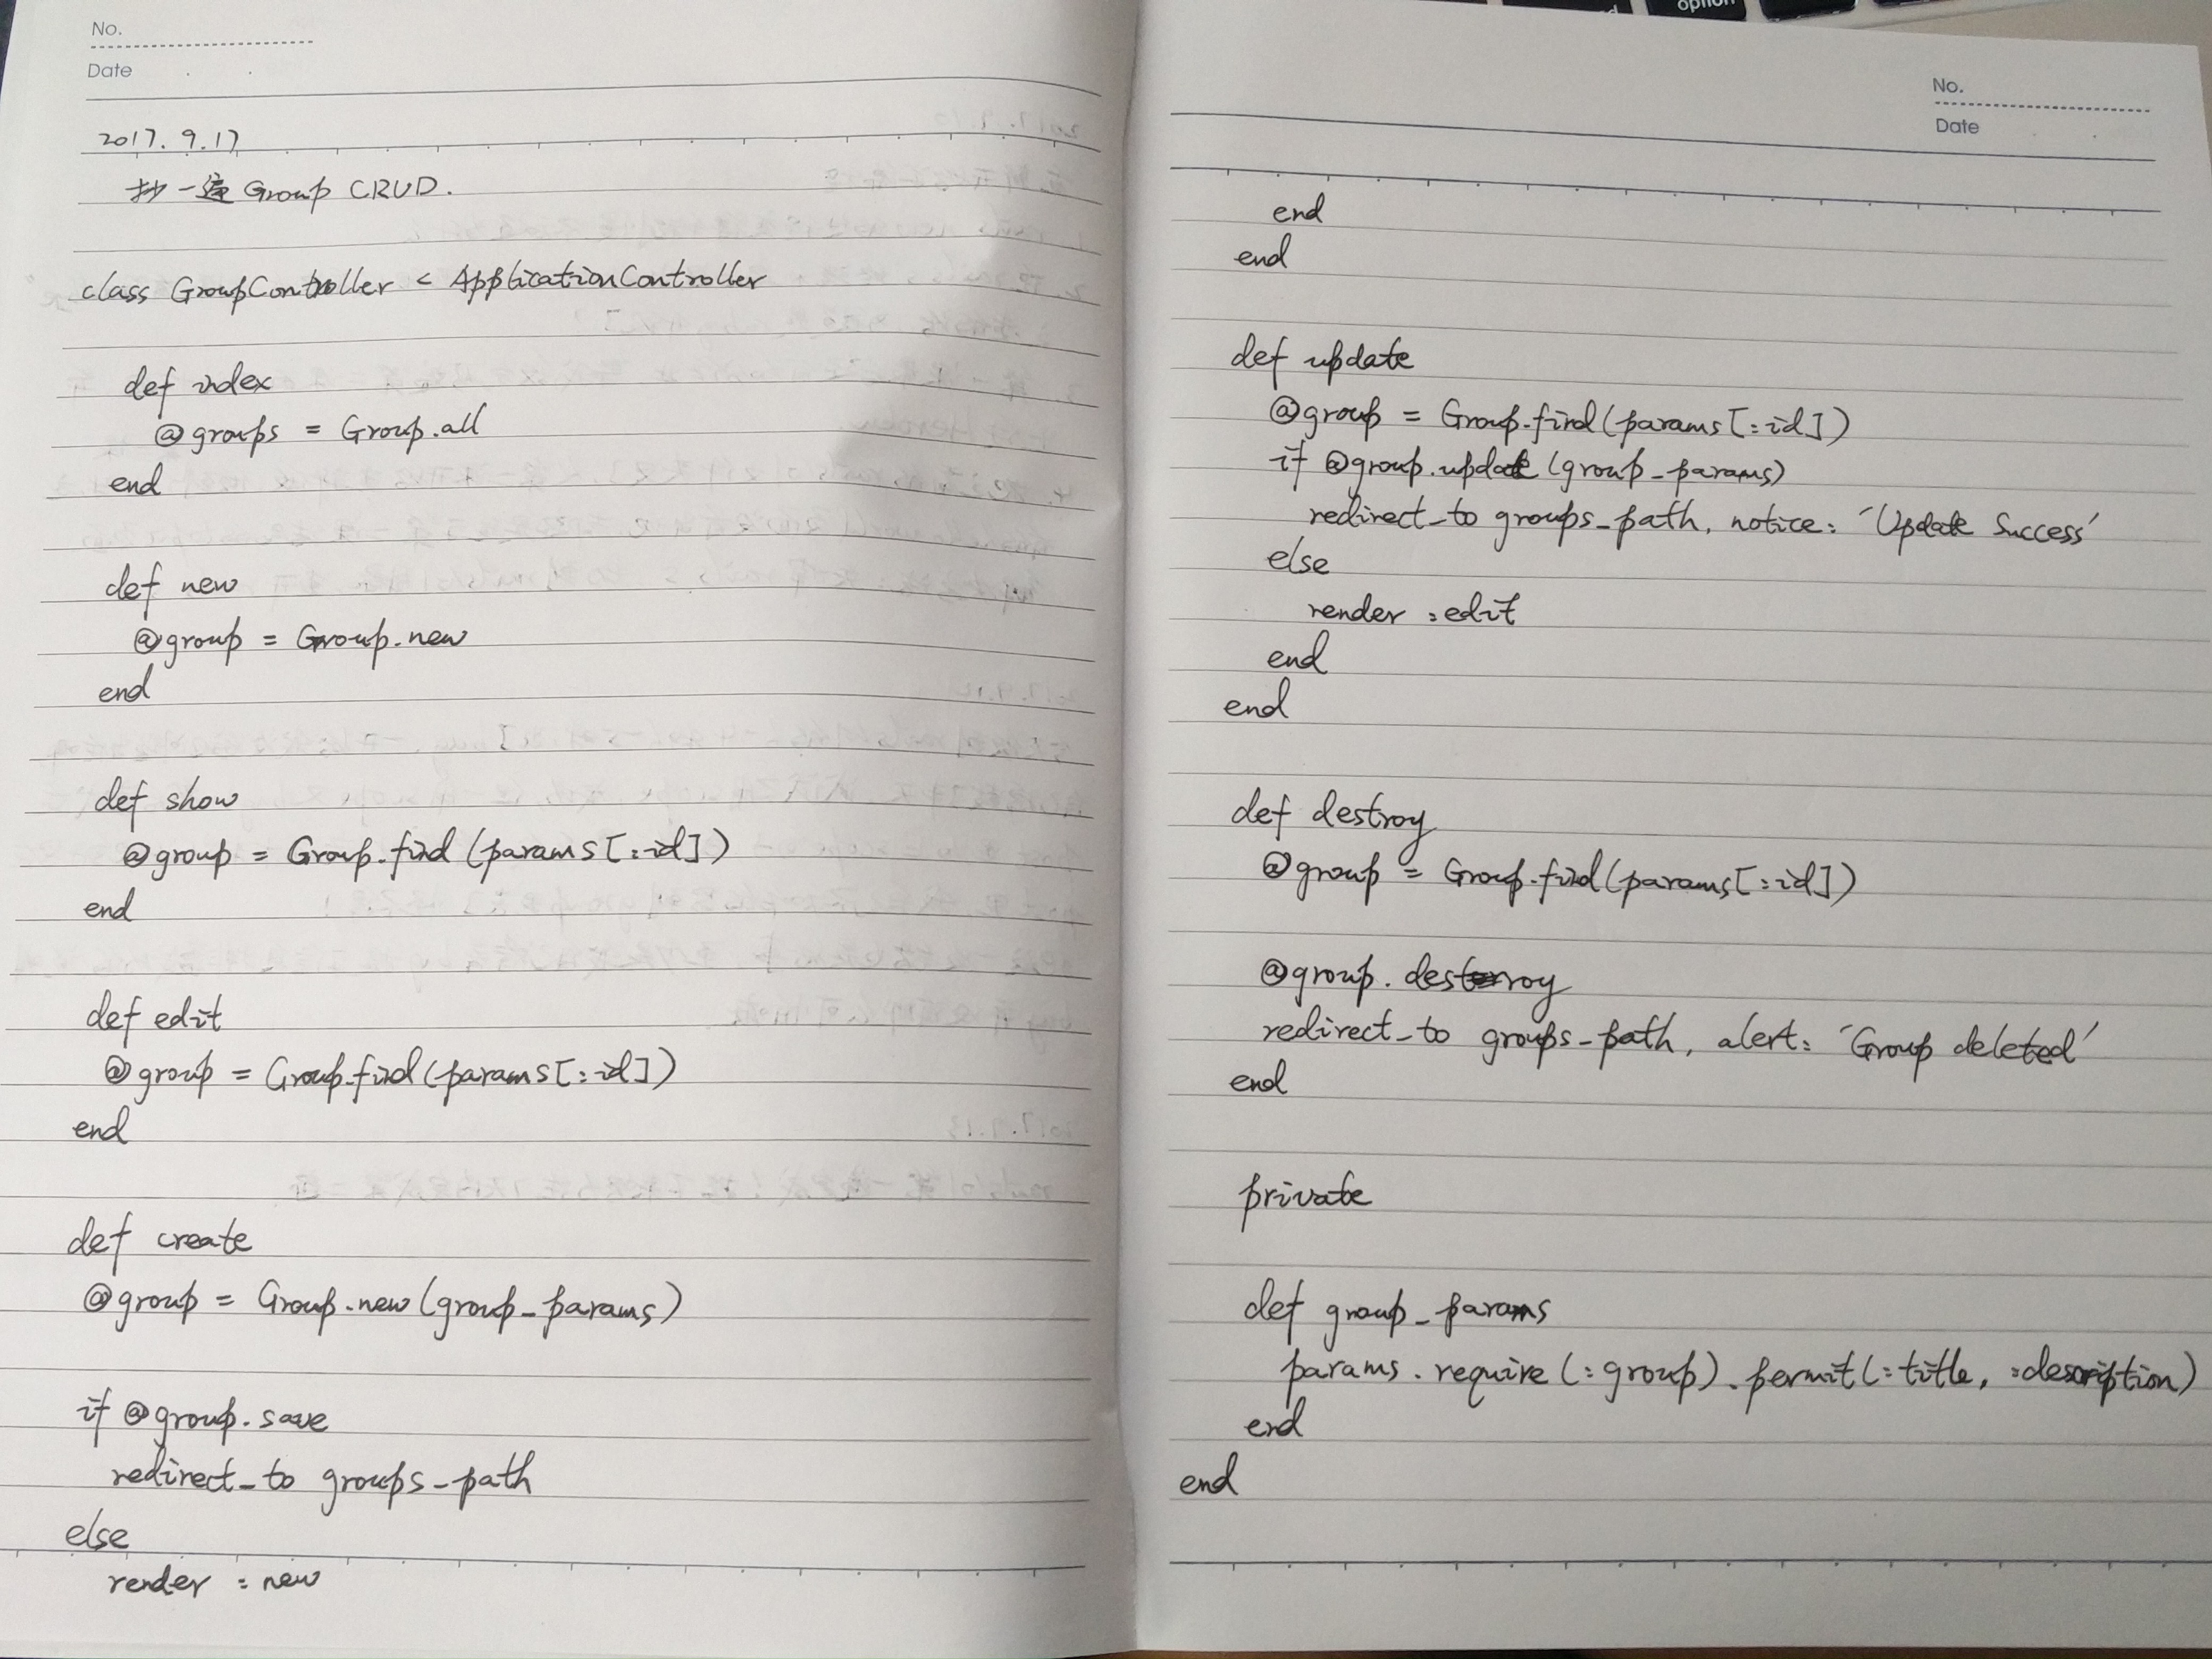 No.
Date
2017.9.17
抄一遍 Group CRUD.
class GroupController < ApplicationController
def index
@groups = Group.all
end
def new
@group = Group.new
end
def show
@group = Group.find(params[:id])
end
def edit
@group = Group.find(params[:id])
end
def create
@group = Group.new(group_params)
if @group.save
redirect_to groups_path
else
render :new
option
No.
Date
end
end
def update
@group = Group.find(params[:id])
if @group.update (group_params)
redirect_to groups_path, notice: 'Update Success'
else
render :edit
end
end
def destroy
@group = Group.find(params[:id])
@group.destroy
redirect_to groups_path, alert: 'Group deleted'
end
private
def group_params
params.require(:group).permit(:title, :description)
end
end